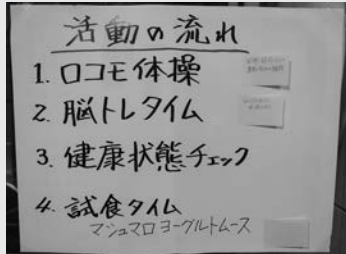 活動の流れ
1. ロコモ体操
2. 脳トレタイム
3. 健康状態チェック
4. 試食タイム
マシュマロヨーグルトムース